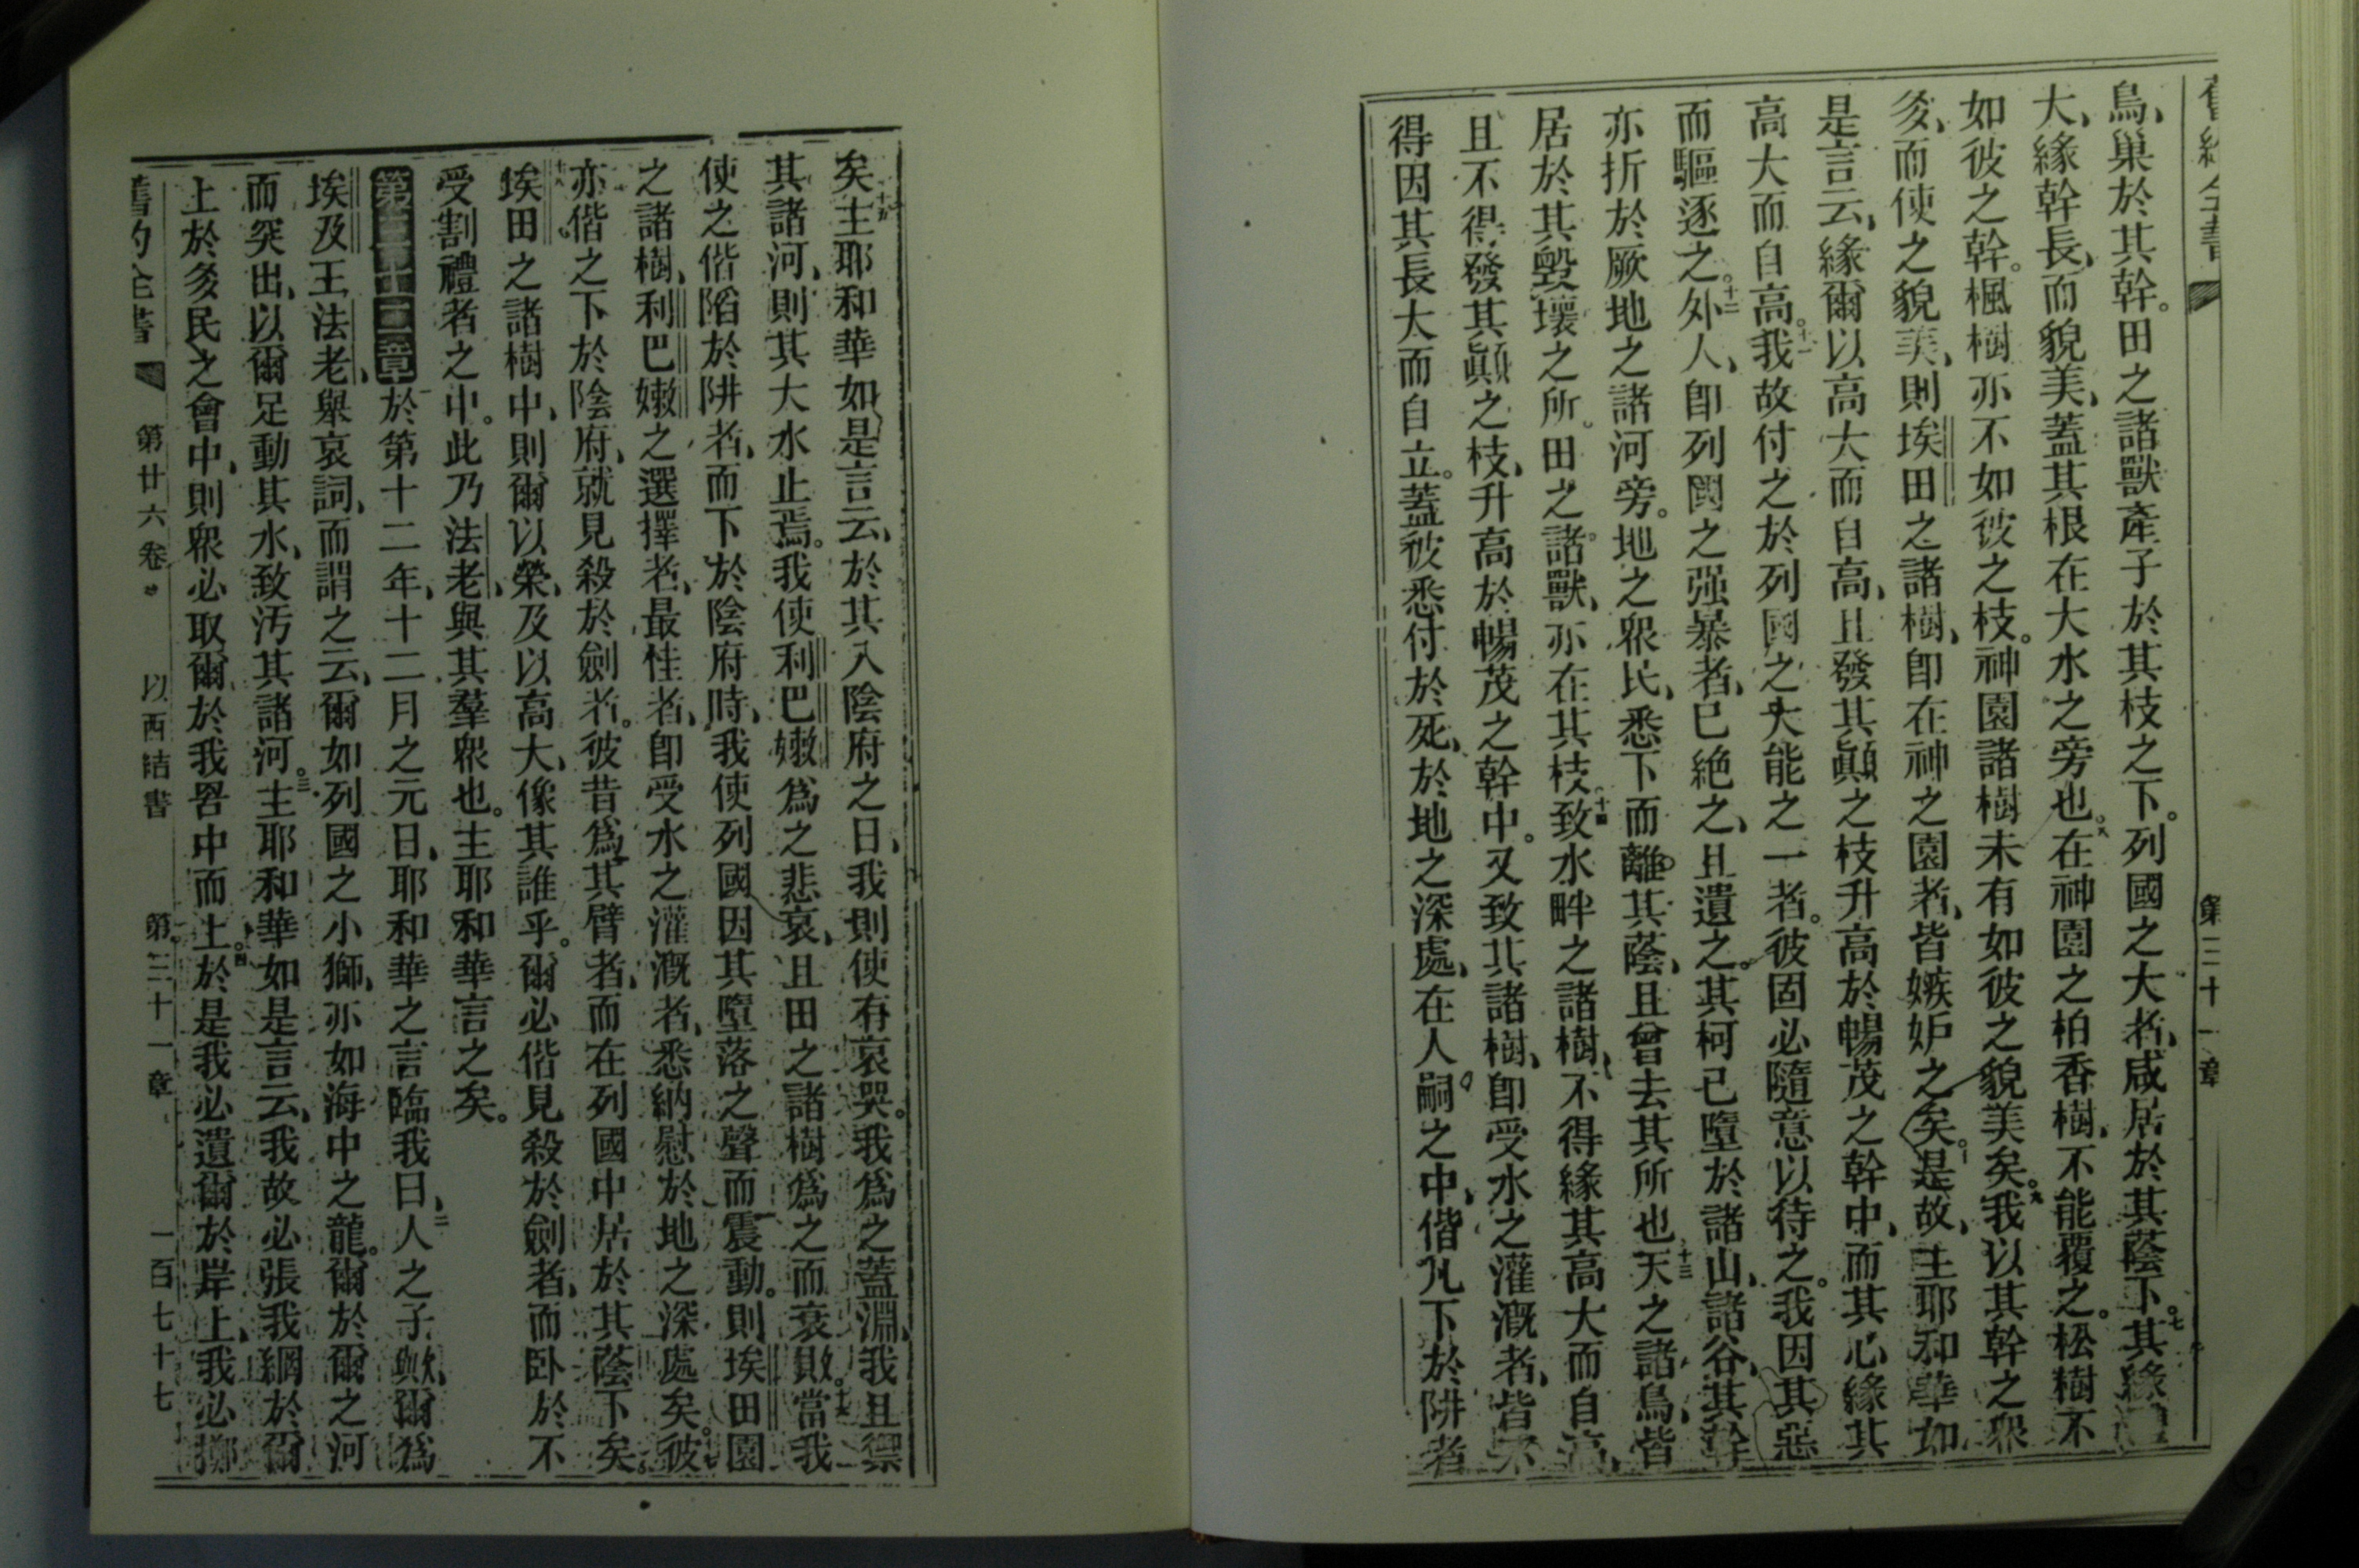 第三十一章
鳥、巢於其幹。田之諸獸產子於其枝之下。列國之大者、咸居於其蔭下。七其緣
大、緣幹長、而貌美、蓋其根在大水之旁也。八在神園之柏香樹、不能覆之。松樹不
如彼之幹。楓樹亦不如彼之枝。神園諸樹未有如彼之貌美矣。九我以其幹之眾
多、而使之貌美、則埃田之諸樹、即在神之園者、皆嫉妒之矣。十是故、主耶和華如
是言云、緣爾以高大而自高、且發其顛之枝升高於暢茂之幹中、而其心緣其
高大而自高。十一我故付之於列國之大能之一者。彼固必隨意以待之。我因其惡
而驅逐之。十二外人、即列國之强暴者、已絕之、且遺之。其柯已墮於諸山、諸谷、其幹
亦折於厥地之諸河旁。地之眾民、悉下而離其蔭、且曾去其所也。十三天之諸鳥、皆
居於其毀壞之所。田之諸獸、亦在其枝。十四致水畔之諸樹、不得緣其高大而自高、
且不得發其顛之枝、升高於暢茂之幹中。又致其諸樹、即受水之灌溉者、皆不
得因其長大而自立。蓋彼悉付於死、於地之深處、在人嗣之中、偕凡下於阱者
矣。十五主耶和華如是言云、於其入陰府之日、我則使有哀哭。我為之蓋淵、我且禦
其諸河、則其大水止焉。我使利巴嫩為之悲哀、且田之諸樹為之而衰敗。十六當我
使之偕陷於阱者、而下於陰府時、我使列國因其墮落之聲而震動。則埃田園
之諸樹、利巴嫩之選擇者、最佳者、即受水之灌溉者、悉納慰於地之深處矣。彼
亦偕之下於陰府、就見殺於劍者。彼昔為其臂者、而在列國中居於其蔭下矣。
十八埃田之諸樹中、則爾以榮、及以高大、像其誰乎。爾必偕見殺於劍者、而卧於不
受割禮者之中。此乃法老、與其羣眾也。主耶和華言之矣。
第三十二章一於第十二年、十二月之元日、耶和華之言臨我曰、二人之子歟、爾為
埃及王法老、舉哀詞、而謂之云、爾如列國之小獅、亦如海中之龍。爾於爾之河
而突出、以爾足動其水、致汚其諸河。三主耶和華如是言云、我故必張我網於爾
上於多民之會中、則眾必取爾於我罟中而上。四於是我必遺爾於岸上、我必擲
第廿六卷 以西結書 第三十一章 一百七十七